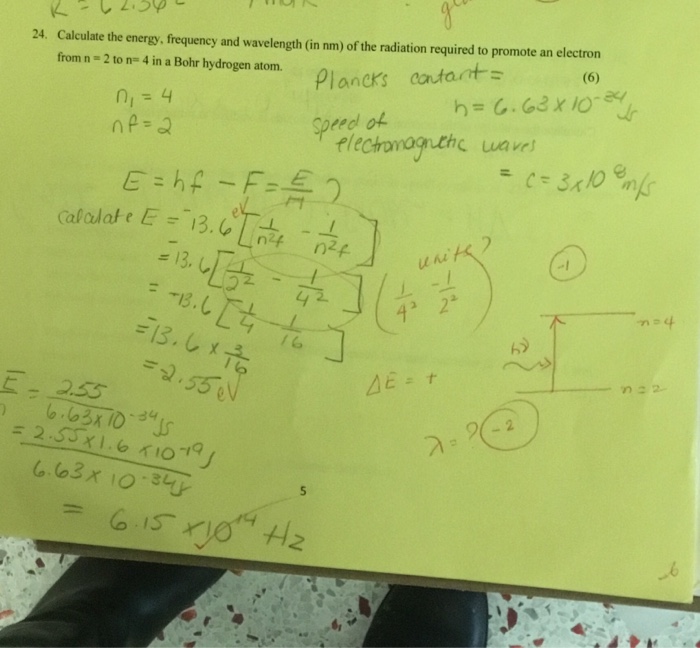 24. Calculate the energy, frequency and wavelength (in nm) of the radiation required to promote an electron
from n = 2 to n= 4 in a Bohr hydrogen atom.
(6)
Plancks contant =
h = 6.63 x 10⁻³⁴ Js
n₁ = 4
nf = 2
speed of
electromagnetic waves
= c = 3x10⁸ m/s
E = hf - F = E/H ?
calculate E = -13.6 eV [1/n²f - 1/n²f]
= -13.6 [1/2² - 1/4²]
units?
(1/4² - 1/2²)
-1
= -13.6 [1/4 - 1/16]
= -13.6 x 3/16
= -2.55 eV
n=4
hν
n=2
ΔE = +
λ = ?
-2
E = 2.55
6.63x10⁻³⁴ Js
= 2.55 x 1.6 x 10⁻¹⁹ J
6.63 x 10⁻³⁴ J
= 6.15 x 10¹⁴ Hz
5
6